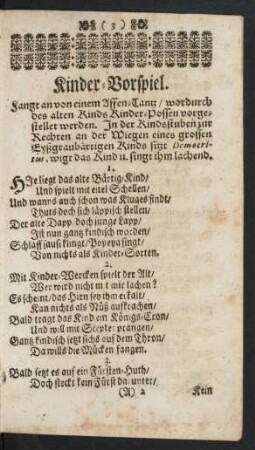 ( 3 )
Kinder-Vorspiel.
Fangt an von einem Affen-Tantz / wordurch
des alten Kinds Kinder-Possen vorge-
stellet werden. In der Kindsstuben zur
Rechten an der Wiegen eines grossen
Eyßgraubärtigen Kinds sitzt Democri-
tus, wigt das Kind u. singt ihm lachend.
1.
HIe liegt das alte Bärtig-Kind /
Und spielt mit eitel Schellen /
Und wanns auch schon was Kluges findt /
Thuts doch sich läppisch stellen /
Der alte Dapp / doch jungs Lapp /
Ist nun gantz kindisch worden /
Schlaff / sauß / klingt / Popeya singt /
Von nichts als Kinder-Sorten.
2.
Mit Kinder-Wercken spielt der Alt /
Wer wird nicht mit mir lachen?
Es scheint / das Hirn sey ihm erkalt /
Kan nichts als Nüß auffrachen /
Bald tragt das Kind ein Königs-Cron /
Und will mit Scepter prangen /
Gantz kindisch setzt sichs auf dem Thron /
Da wills die Mücken fangen.
3.
Bald setzt es auf ein Fürsten-Huth /
Doch steckt kein Fürst darunter /
(A) 2 Kein